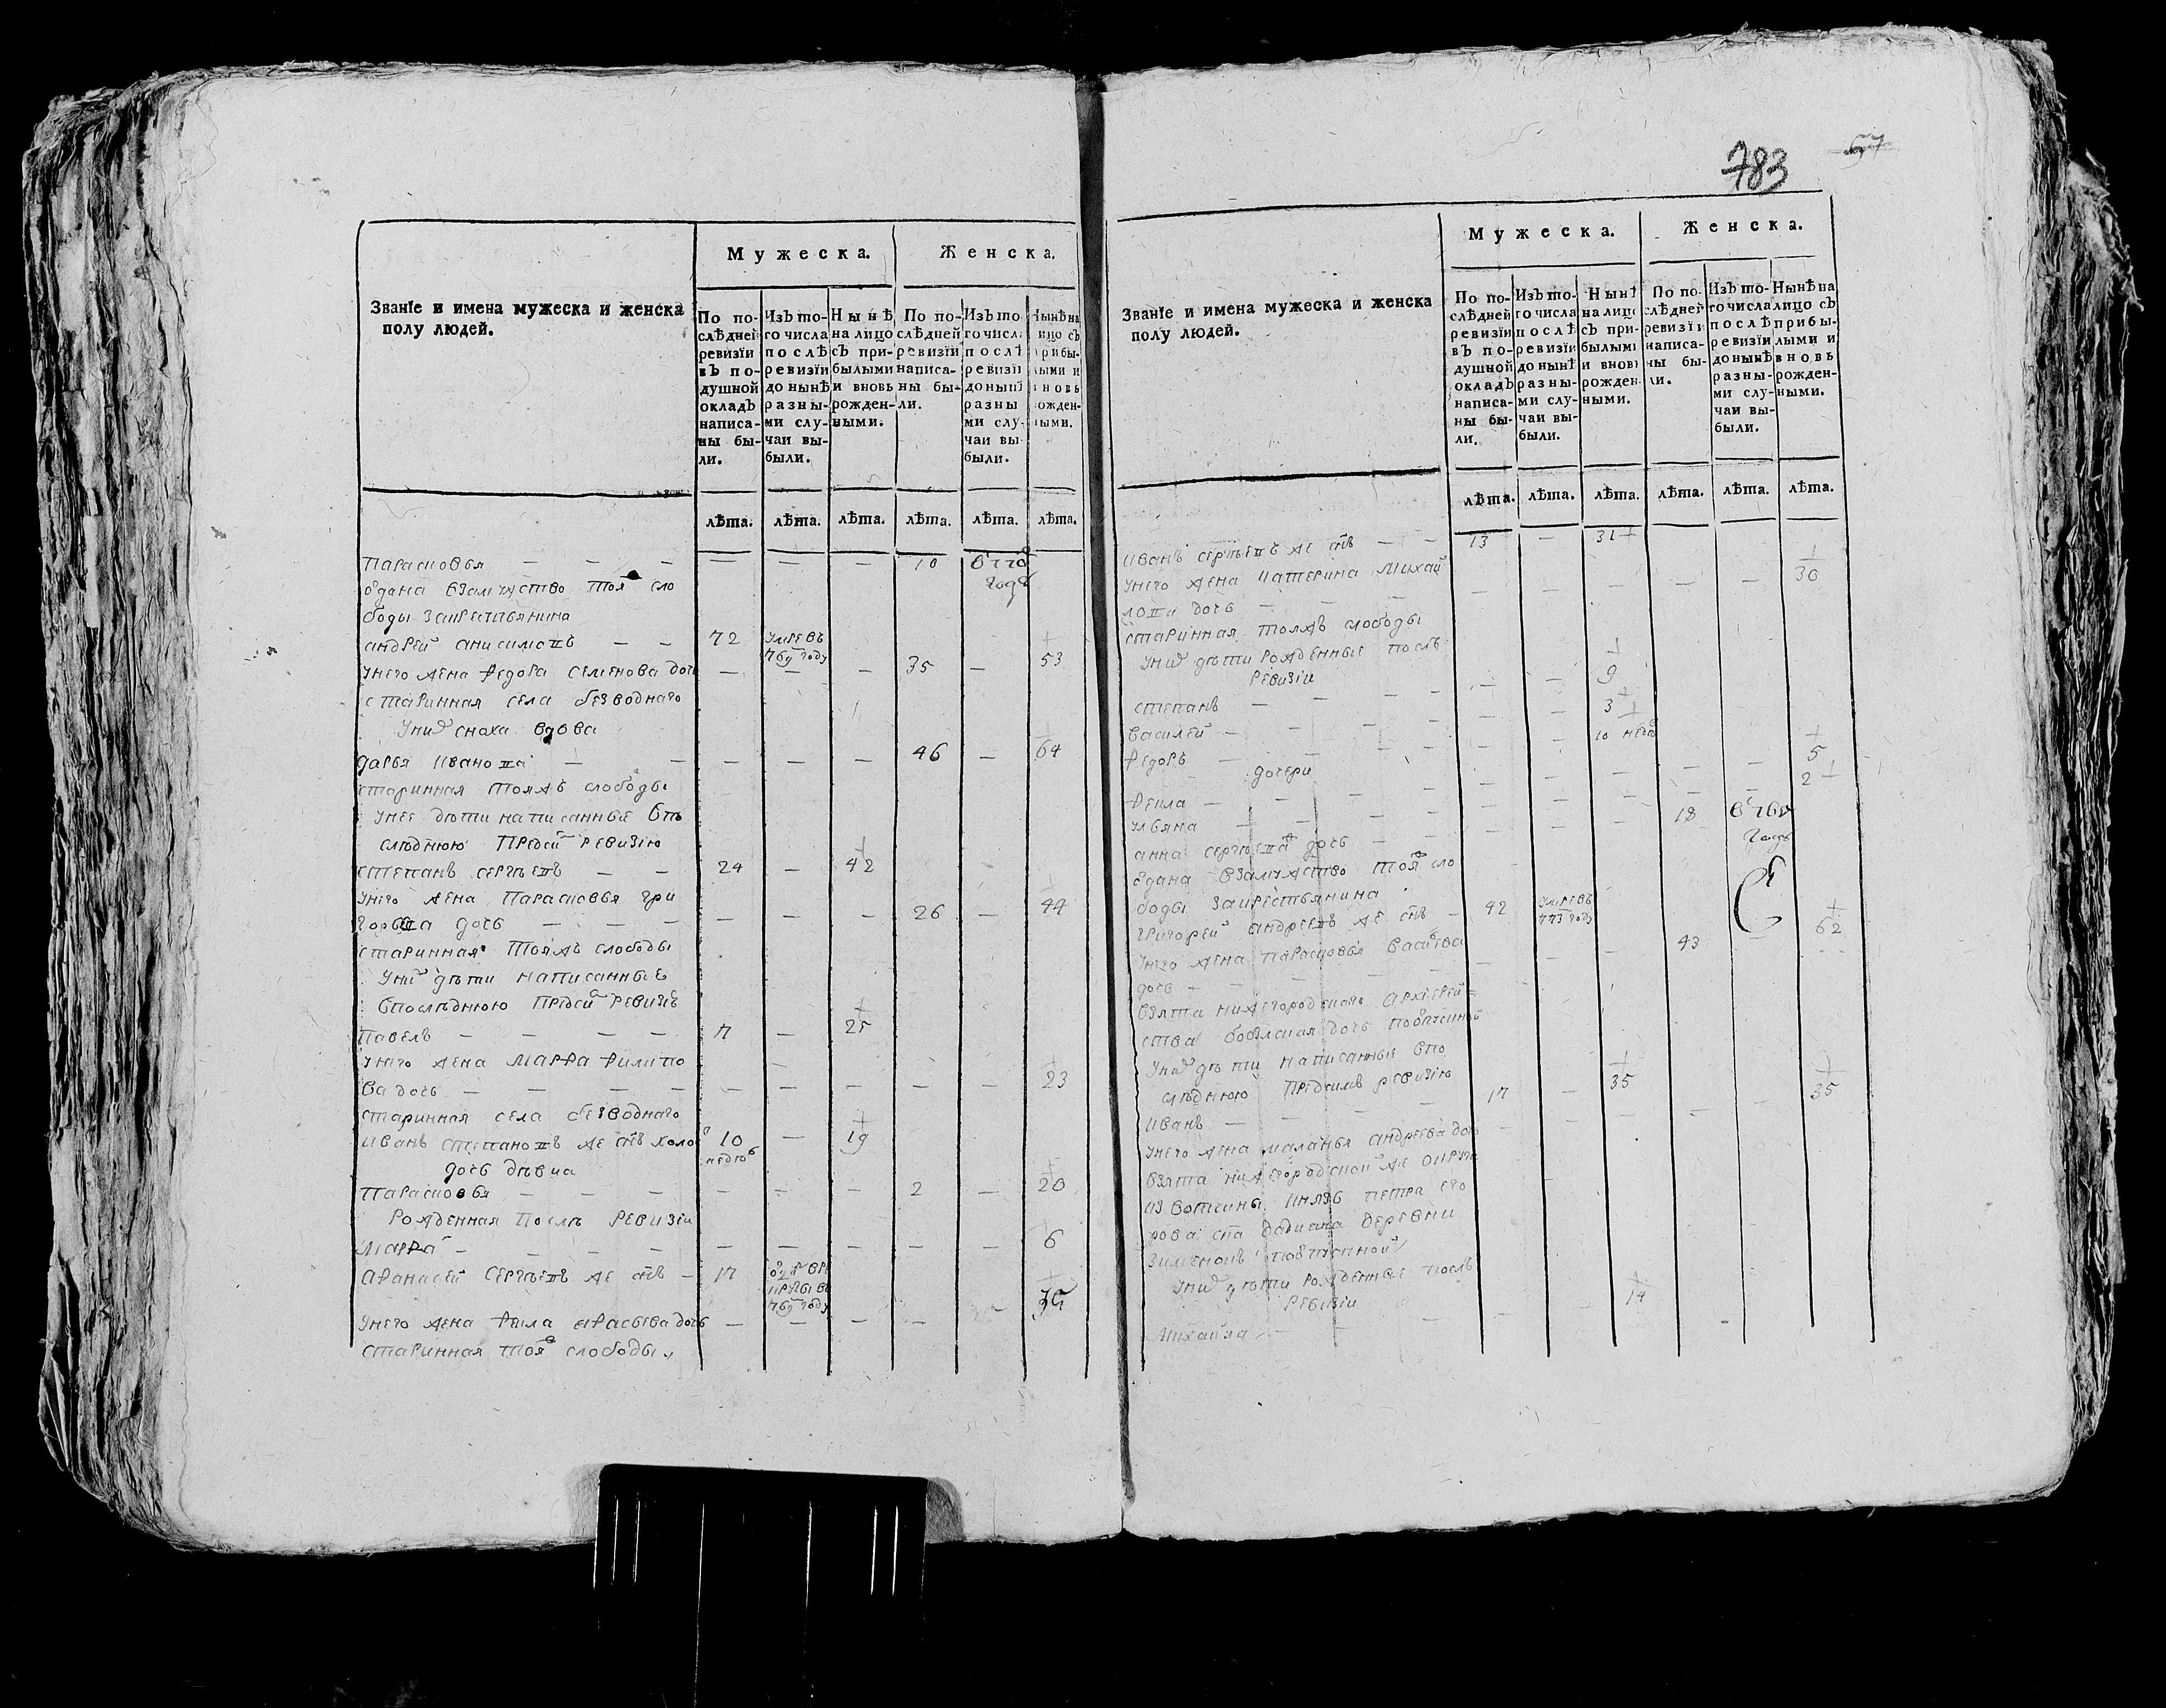 783 57
Мужеска. Женска.
Званїе и имена мужеска и женска
полу людей.
По по-
слѣдней
ревизїи
въ по-
душной
окладъ
написа-
ны бы-
ли.
Изъ то-
го числа
послѣ
ревизїи
до нынѣ
разны-
ми слу-
чаи вы-
были.
Нынѣ
на лицо
съ при-
былыми
и вновь
рожден-
ными.
По по-
слѣдней
ревизїи
написа-
ны бы-
ли.
Изъ то
го числа
послѣ
ревизїи
до нынѣ
разны
ми слу-
чаи вы
были.
Нынѣ на
лицо съ
прибы-
лыми и
вновь
рожден-
ными.
лѣта. лѣта. лѣта. лѣта. лѣта. лѣта.
Парасковья — — — — — — — 10
году
ѿдана взамуство тоя сло
боды закрестьянина
андрей анисимовъ — — 72 умре въ
769 году
унего жена Ѳедора семенова дочь — — — 35 — 53
старинная села безводнаго
унихъ сноха вдова
дарья иванова — — — — — 46 — 64
старинная тояжъ слободы
унее дѣти написанные впо
слѣднюю предъ сею ревизию
степанъ сергѣевъ — — 24 — 42
унего жена Парасковья гри
горьева дочь — — — — — — 26 — 44
старинная тояжъ слободы
унихъ дѣти написанные
впослѣднюю предъ сею ревизiю
Павелъ — — — — 7 — 25
унего жена Марѳа Ѳилипо
ва дочь — — — — — — — — — 23
старинная села безводнаго
иванъ степановъ же сынъ холостъ 10 — 19
недѣль
дочь дѣвка
Парасковья — — — — — — 2 — 20
рожденная послѣ ревизiи
Марѳа — — — — — — — — — 6
аѳанасей сергѣевъ же сынъ — 17 отданъ в ре
круты въ
769 году
унего жена Ѳекла — — — — 35
старинная тояжъ слободы
Мужеска. Женска.
Званїе и имена мужеска и женска
полу людей.
По по-
слѣдней
ревизїи
въ по-
душной
окладъ
написа-
ны бы-
ли.
Изъ то-
го числа
послѣ
ревизїи
до нынѣ
разны-
ми слу-
чаи вы-
были.
Нынѣ
на лицо
съ при-
былыми
и вновь
рожден
ными.
По по-
слѣдней
ревизїи
написа-
ны бы-
ли.
Изъ то-
го числа
послѣ
ревизїи
до нынѣ
разны-
ми слу-
чаи вы-
были.
Нынѣ на
лицо съ
прибы-
лыми и
вновь
рожден-
ными.
лѣта. лѣта. лѣта. лѣта. лѣта. лѣта.
иванъ сергѣевъ же сынъ — — 13 — 31
унего жена катерина михай — — — — — 30
лова дочь — — —
старинная тояжъ слободы
унихъ дѣти рожденные послѣ
ревизiи
степанъ — — — — — — 9
василей — — — — — 3
Ѳедоръ — — — — — — 10 недель
дочери
Ѳекла — — — — — — — — — 5
ульяна — — — — — — — — — 2
анна сергѣева дочь — — — — 18
году
ѿдана взамуство тоя сло
боды закрестьянина
григорей андреевъ же сынъ — 42 умре въ
773 году
унего жена парасковья васильева — — — 43 62
дочь — — — —
взята нижегородскаго архiерей
ства бобыльская дочь
унихъ дѣти написанные впо
слѣднюю предсимъ ревизiю
иванъ — — — — 17 — 35
унего жена маланья андреева дочь — — — — — 35
взята нижегородской же округи
из вотчины князь петра его
рова сна деревни
унихъ дѣти рожденные послѣ
ревизiи
михайла — — — — — 14